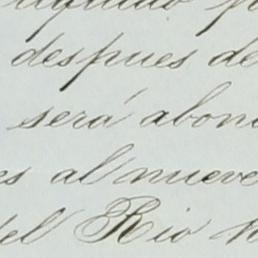 despues de
será abon
es al nueve
del Rio